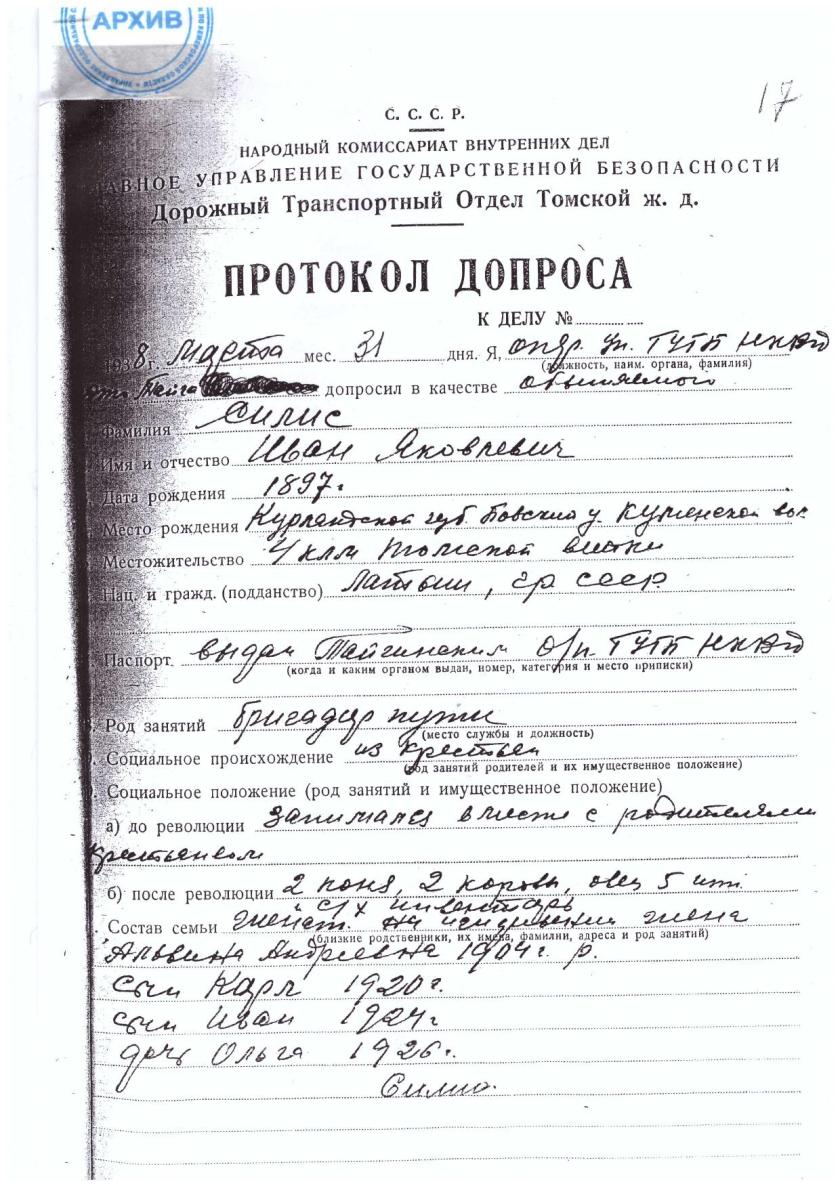 АРХИВ
17
С. С. С. Р.
НАРОДНЫЙ КОМИССАРИАТ ВНУТРЕННИХ ДЕЛ
ГЛАВНОЕ УПРАВЛЕНИЕ ГОСУДАРСТВЕННОЙ БЕЗОПАСНОСТИ
Дорожный Транспортный Отдел Томской ж. д.
ПРОТОКОЛ ДОПРОСА
К ДЕЛУ №
1938 г. Марта мес. 31 дня. Я, опер. уп. ГУГБ НКВД
(должность, наим. органа, фамилия)
Тайга допросил в качестве обвиняемого
Фамилия Силис
Имя и отчество Иван Яковлевич
Дата рождения 1897 г
Место рождения Курляндской губ. у.
Местожительство 4 клм Томской ветки
Нац. и гражд. (подданство) Латыш, гр ссср
Паспорт выдан Тайгинским о/п. ГУГБ НКВД
(когда и каким органом выдан, номер, категория и место приписки)
Род занятий бригадир пути
(место службы и должность)
Социальное происхождение из крестьян
(род занятий родителей и их имущественное положение)
Социальное положение (род занятий и имущественное положение)
а) до революции Занимался вместе с родителями
крестьянством
б) после революции 2 коня, 2 коровы, овец 5 шт.
и с/х инвентарь
Состав семьи женат. жена
(близкие родственники, их имена, фамилии, адреса и род занятий)
Альвина Андреевна 1904 г. р.
сын Карл 1920 г.
сын Иван 1924 г
дочь Ольга 1926 г.
Силис.